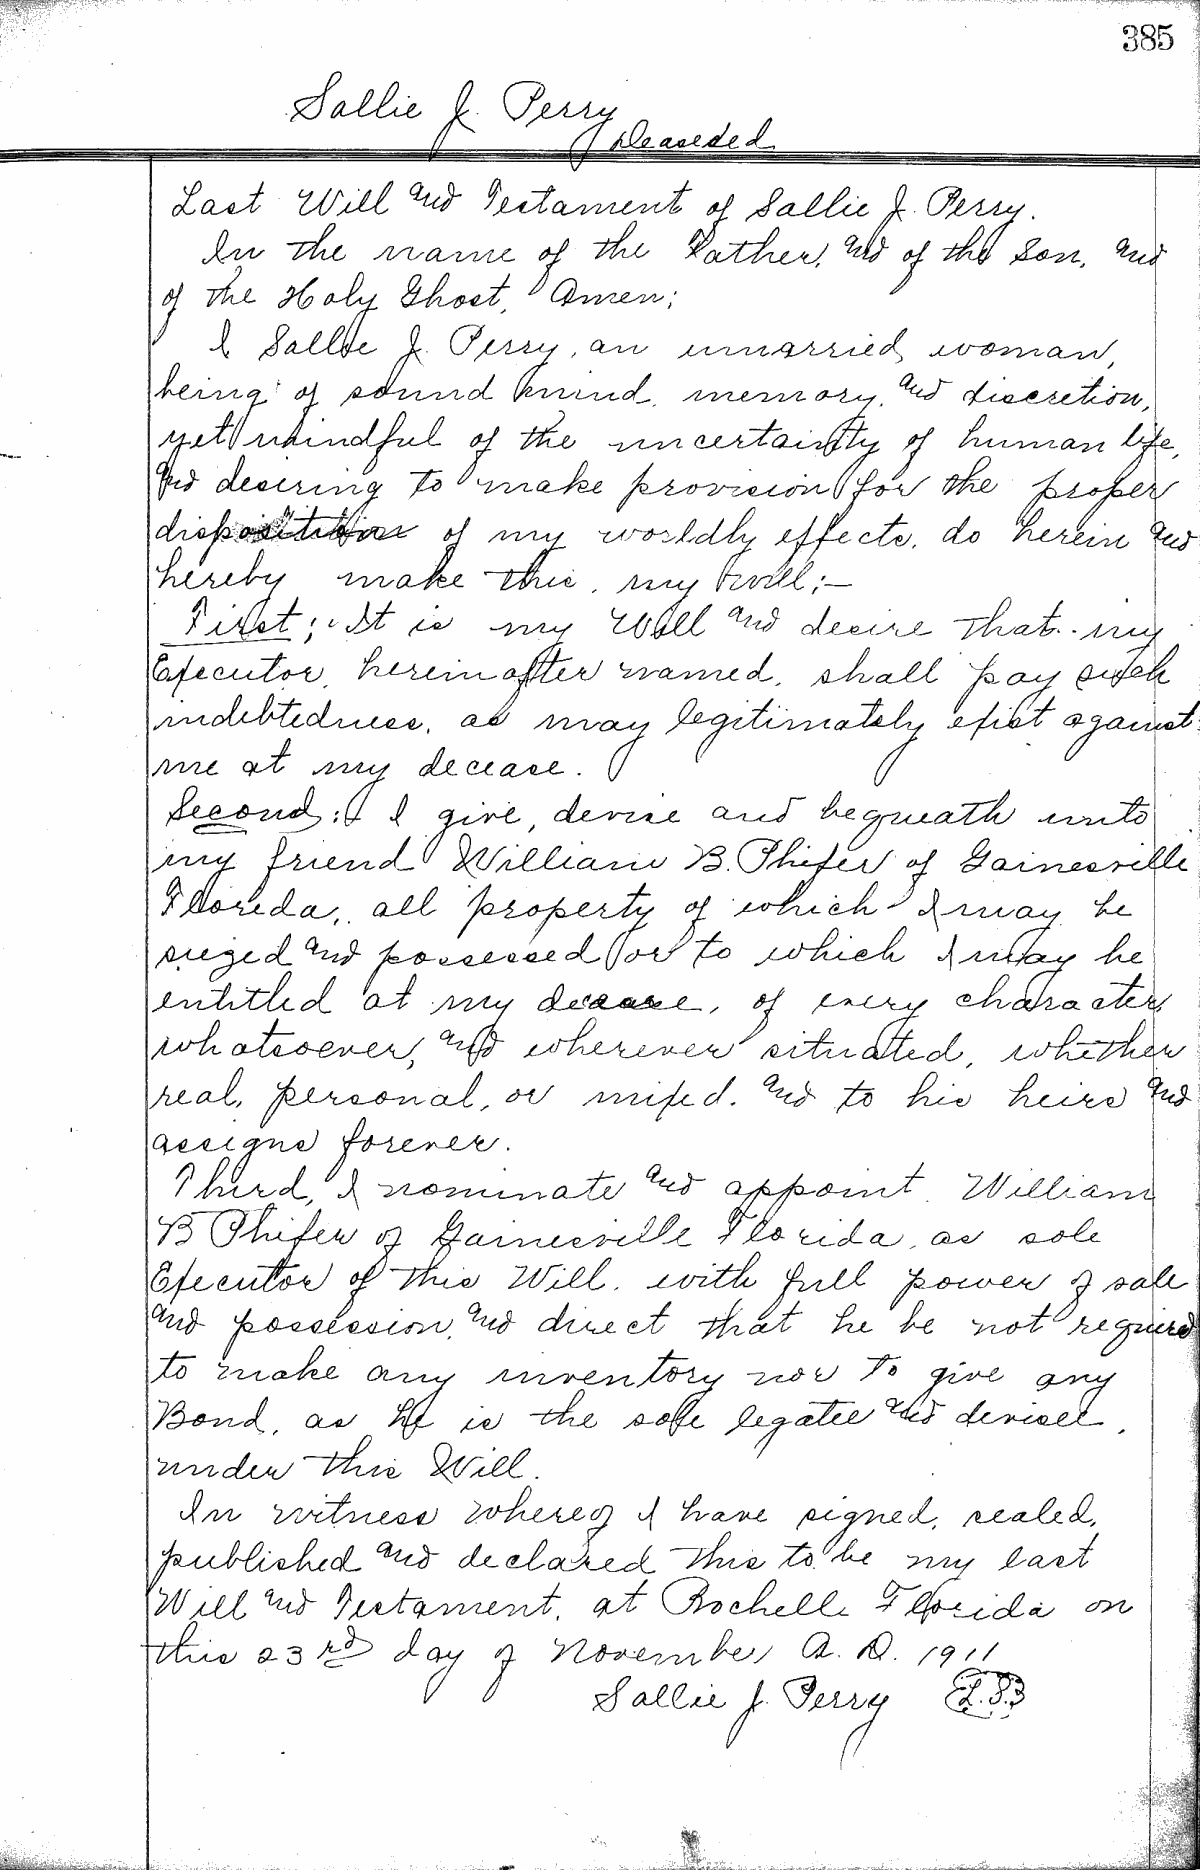 385
Sallie J. Perry
Deaseded
Last Will and Testament of Sallie J. Perry.
In the name of the Father, and of the Son, and
of the Holy Ghost, Amen;
I Sallie J. Perry, an unmarried, woman,
being of sound mind, memory, and discretion,
yet mindful of the uncertainty of human life,
and desiring to make provision for the proper
disposition of my worldly effects, do herein and
hereby make this, my will;—
First; It is my Will and desire that my
Executor, hereinafter named, shall pay such
indebtedness, as may legitimately exist against
me at my decease.
Second: I give, devise and bequeath unto
my friend William B. Phifer of Gainesville
Florida, all property of which I may be
siezed and possessed or to which I may be
entitled at my decease, of every character
whatsoever, and wherever situated, whether
real, personal, or mixed. and to his heirs and
assigns forever.
Third, I nominate and appoint William
B Phifer of Gainesville Florida, as sole
Executor of this Will, with full power of sale
and possession, and direct that he be not required
to make any inventory nor to give any
Bond, as he is the sole legatee and devisee,
under this Will.
In witness whereof I have signed, sealed,
published and declared this to be my last
Will and Testament, at Rochelle Florida on
this 23rd day of November A. D. 1911
Sallie J. Perry L.S.